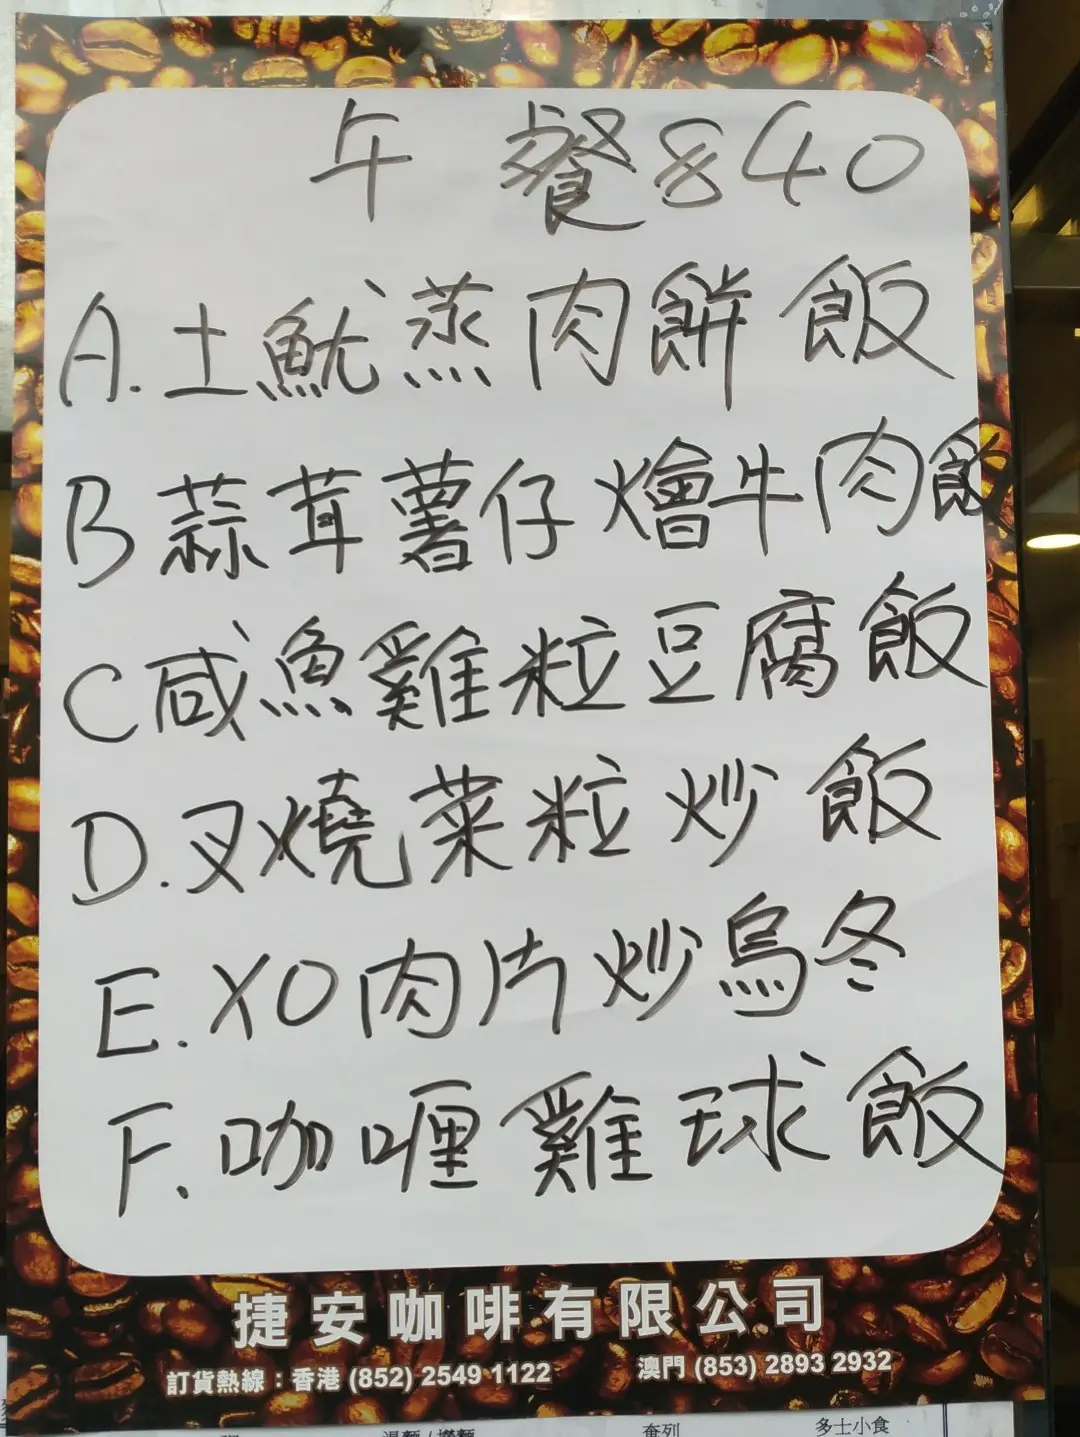 午餐$40
A.土魷蒸肉餅飯
B蒜茸薯仔燴牛肉飯
C咸魚雞粒豆腐飯
D.叉燒菜粒炒飯
E.XO肉片炒烏冬
F.咖喱雞球飯
捷安咖啡有限公司
訂貨熱線：香港 (852) 2549 1122 澳門 (853) 2893 2932
湯麵 / 撈麵 奄列 多士小食